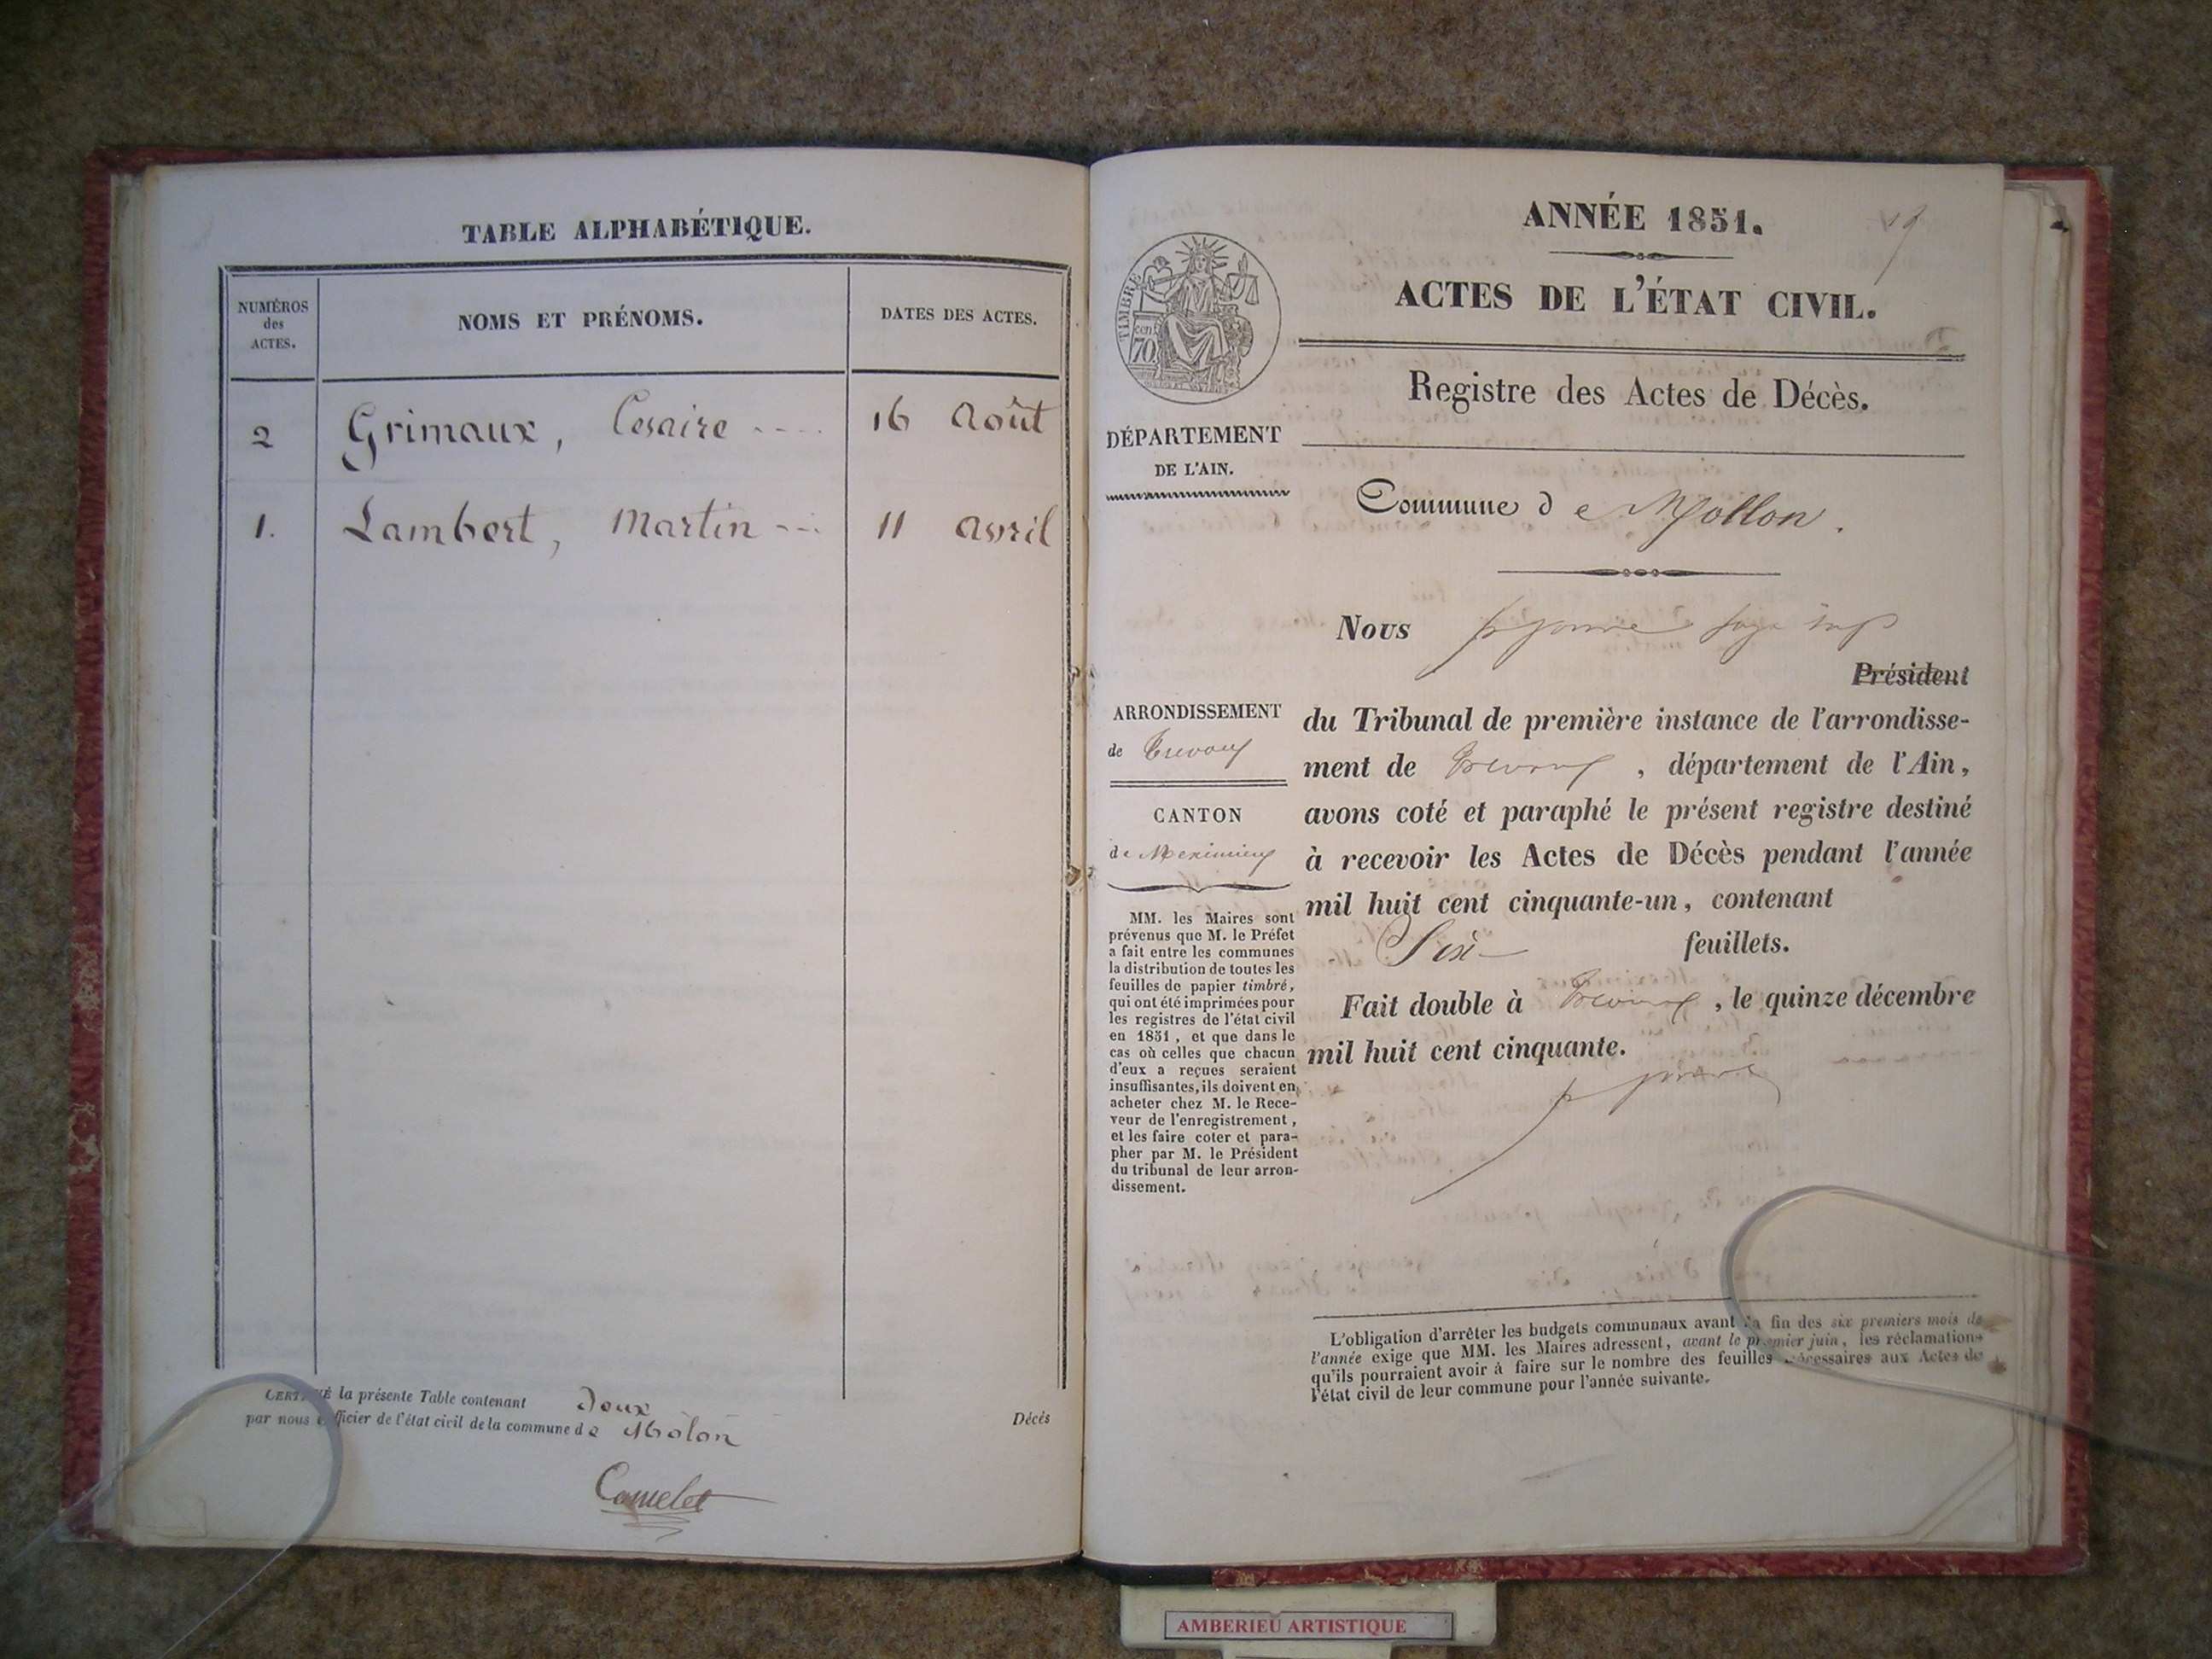 TABLE ALPHABÉTIQUE.
NUMÉROS des ACTES.
NOMS ET PRÉNOMS.
DATES DES ACTES.
2 Grimaux, Cesaire 16 Août
1. Lambert, Martin 11 avril
CERTIFIÉ la présente Table contenant Deux Décès
par nous officier de l'état civil de la commune de Molon
Camelet
ANNÉE 1851.
19
ACTES DE L'ÉTAT CIVIL.
TIMBRE
cen 70
Registre des Actes de Décès.
DÉPARTEMENT
DE L'AIN.
Commune de Mollon.
ARRONDISSEMENT
de Trevoux
CANTON
de Meximieux
MM. les Maires sont
prévenus que M. le Préfet
a fait entre les communes
la distribution de toutes les
feuilles de papier timbré,
qui ont été imprimées pour
les registres de l'état civil
en 1851, et que dans le
cas où celles que chacun
d'eux a reçues seraient
insuffisantes, ils doivent en
acheter chez M. le Rece-
veur de l'enregistrement,
et les faire coter et para-
pher par M. le Président
du tribunal de leur arron-
dissement.
Nous
Président
du Tribunal de première instance de l'arrondisse-
ment de Trevoux, département de l'Ain,
avons coté et paraphé le présent registre destiné
à recevoir les Actes de Décès pendant l'année
mil huit cent cinquante-un, contenant
Six feuillets.
Fait double à Trevoux, le quinze décembre
mil huit cent cinquante.
L'obligation d'arrêter les budgets communaux avant la fin des six premiers mois de
l'année exige que MM. les Maires adressent, avant le premier juin, les réclamations
qu'ils pourraient avoir à faire sur le nombre des feuilles nécessaires aux Actes de
l'état civil de leur commune pour l'année suivante.
AMBERIEU ARTISTIQUE